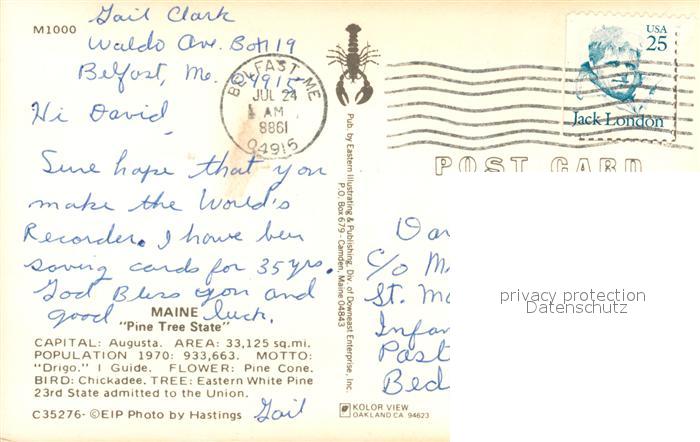 M1000
Gail Clark
Waldo Ave. Box 119
Belfast, Me. 04915
BELFAST ME
JUL 24
AM
1988
04915
USA
25
Jack London
POST CARD
Hi David,
Sure hope that you
make the World's
Recorder. I howe ben
saving cards for 35 yrs.
God Bless you and
good luck.
Gail
MAINE
"Pine Tree State"
CAPITAL: Augusta. AREA: 33,125 sq.mi.
POPULATION 1970: 933,663. MOTTO:
"Drigo." I Guide. FLOWER: Pine Cone.
BIRD: Chickadee. TREE: Eastern White Pine
23rd State admitted to the Union.
C35276- ©EIP Photo by Hastings
Pub. by Eastern Illustrating & Publishing, Div. of Downeast Enterprise, Inc.
P.O. Box 679 - Camden, Maine 04843
KOLOR VIEW
OAKLAND CA 94623
Da
C/o M
St. Ma
Infan
Past
Bed
privacy protection
Datenschutz